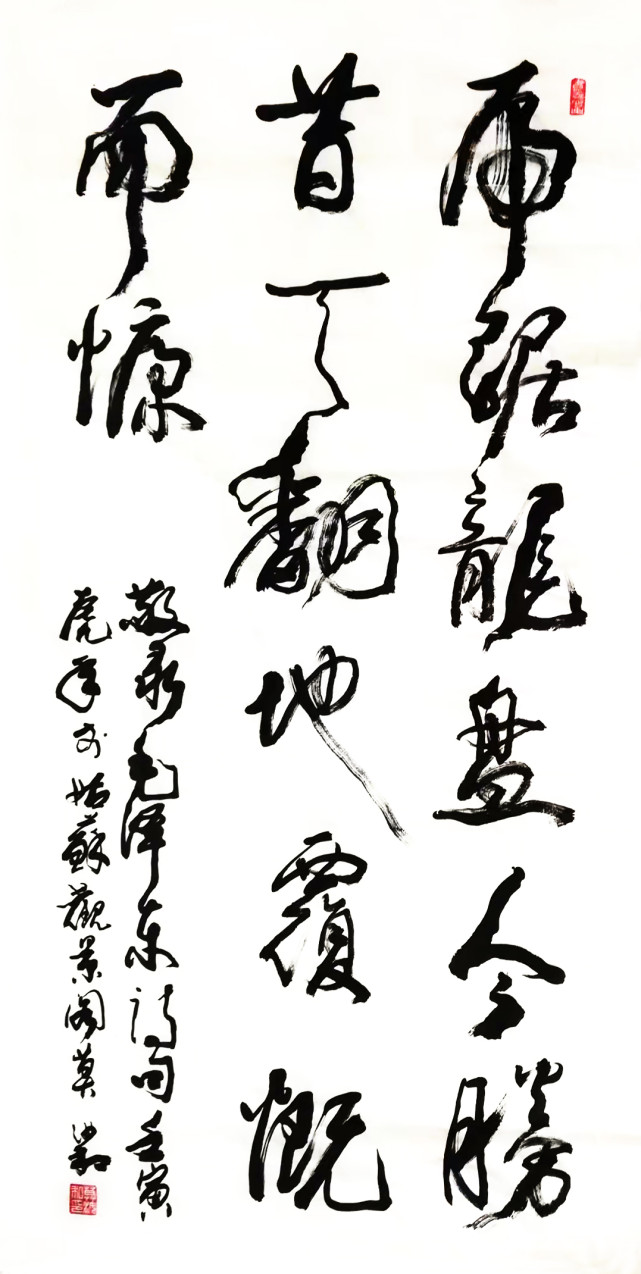 虎踞龍盤今勝
昔天翻地覆慨
而慷
敬录毛泽东詩句壬寅
虎年於姑蘇觀景阁莫